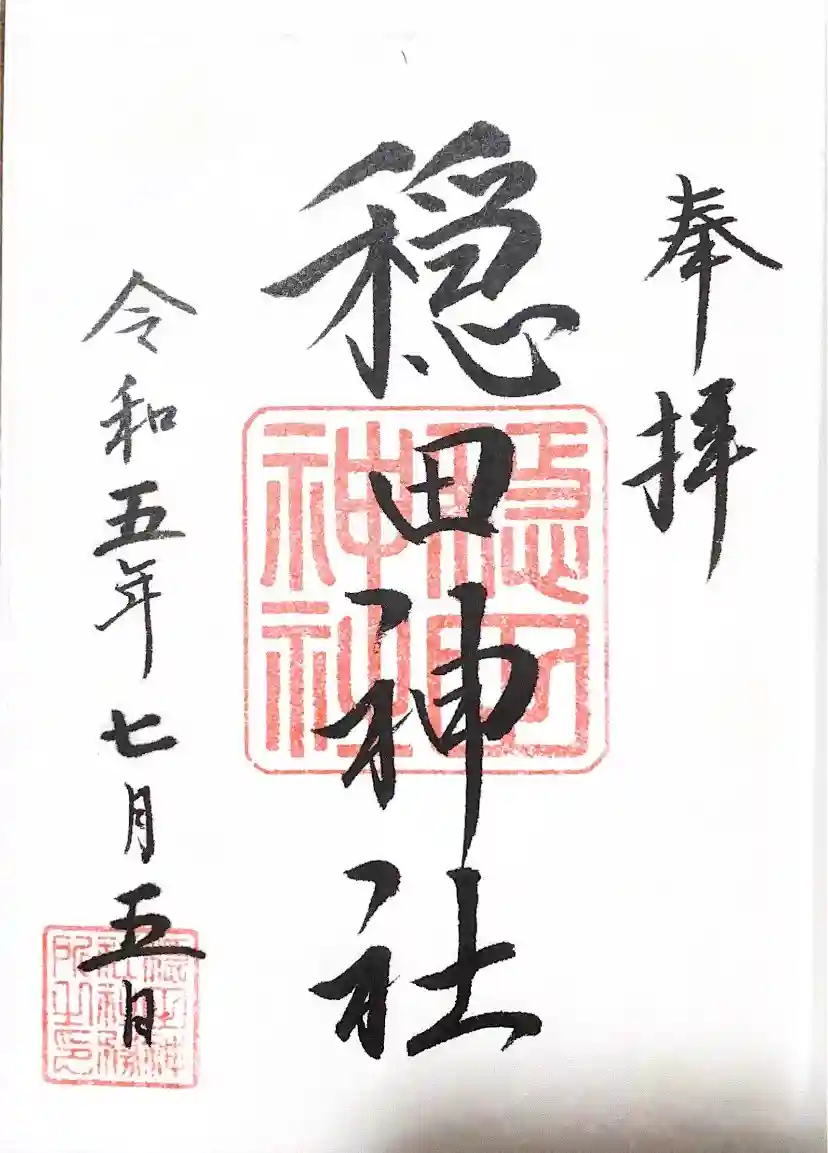 奉拝
穏田神社
令和五年七月五日
穏田神社
穏田神社社務所之印